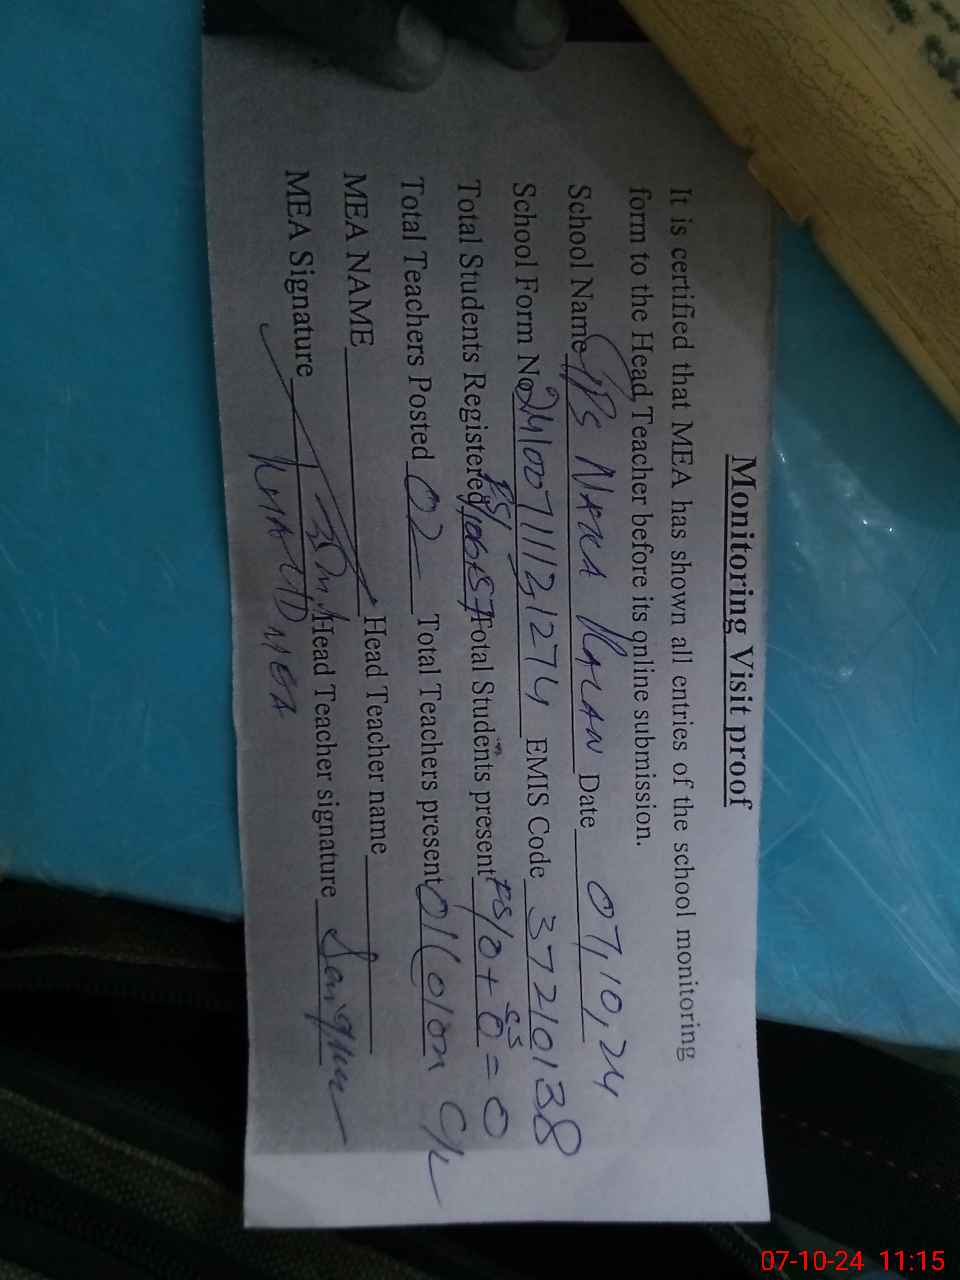 Monitoring Visit proof
It is certified that MEA has shown all entries of the school monitoring
form to the Head Teacher before its online submission.
School Name GPS NAKKA KALAN Date 07,10,24
School Form No 2410071112,1274 EMIS Code 37210138
Total Students Registered Total Students present PS/0 + SS 0 = 0
Total Teachers Posted 02 Total Teachers present 01
MEA NAME Head Teacher name
MEA Signature Head Teacher signature
MEA
07-10-24 11:15